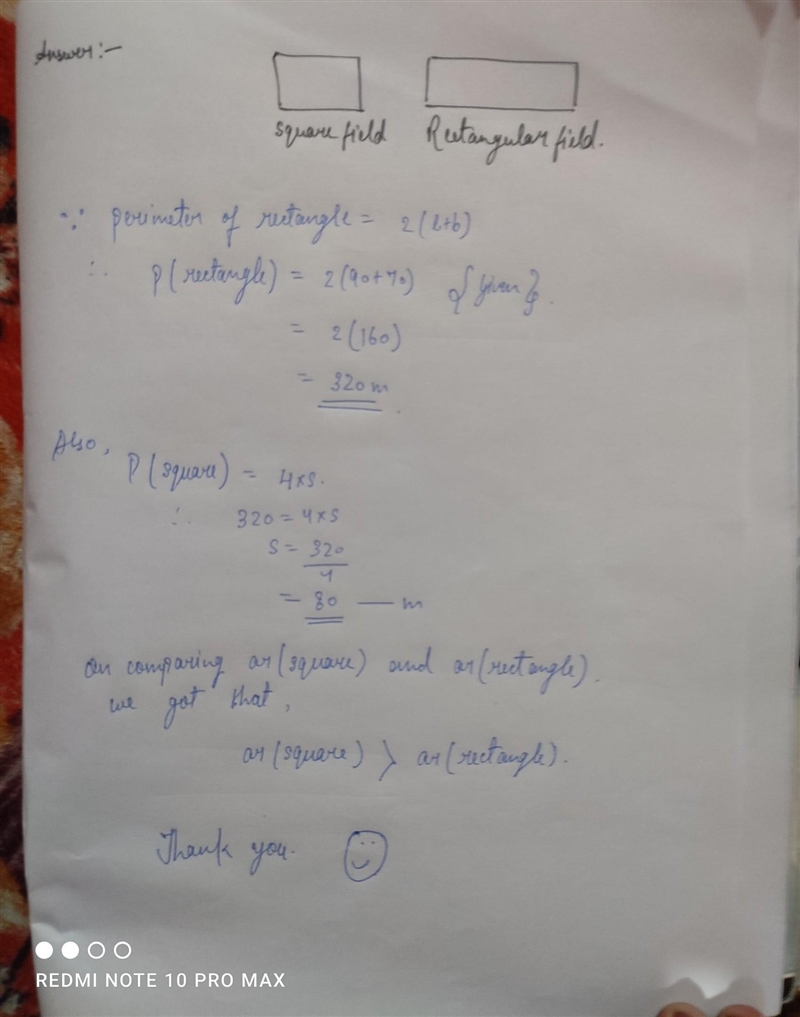 Answer:-
square field Rectangular field.
∵ perimeter of rectangle = 2(l+b)
∴ P(rectangle) = 2(90+70) {Given}.
= 2(160)
= 320 m.
Also,
P(square) = 4×s.
∴ 320 = 4×s
s = 320/4
= 80 — m
On comparing ar(square) and ar(rectangle).
we got that,
ar(square) > ar(rectangle).
Thank you.
REDMI NOTE 10 PRO MAX